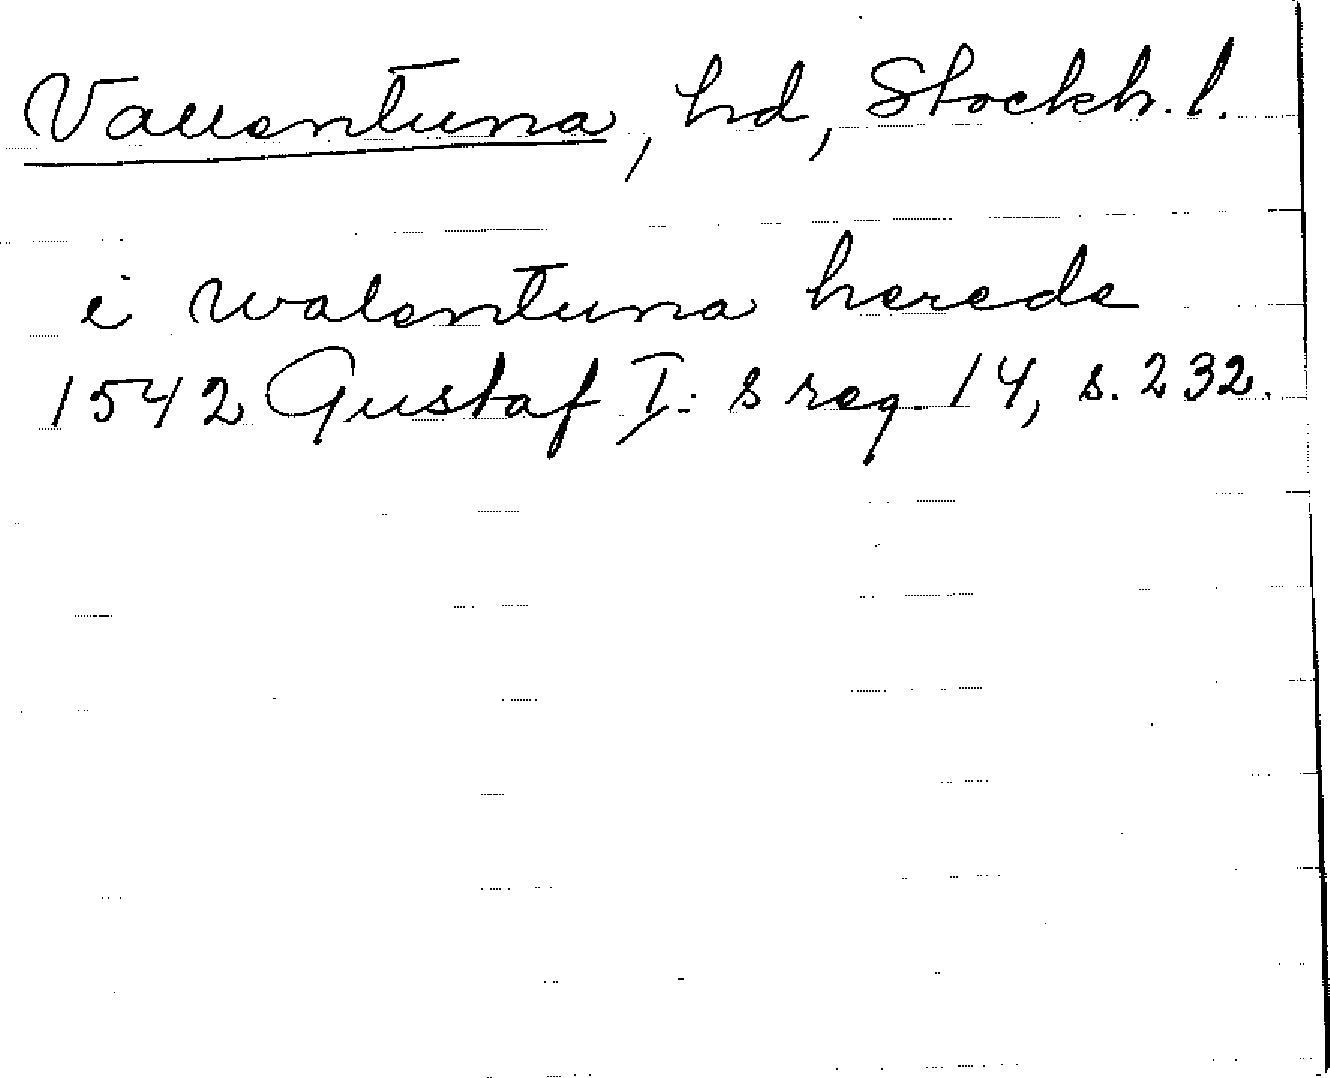 Vallentuna, hd, Stockh. l.
i walentuna herede
1542 Gustaf I:s reg 14, s. 232.